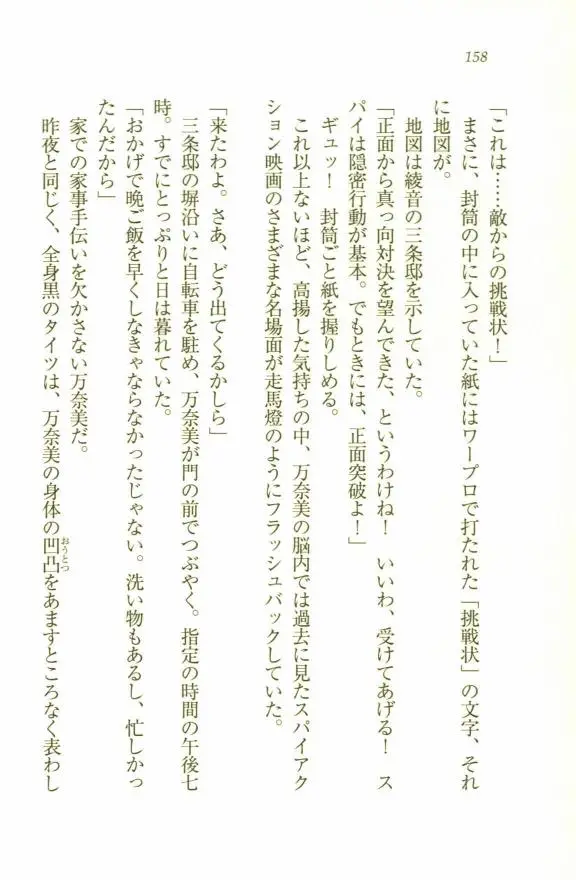 158
「これは……敵からの挑戦状！」
まさに、封筒の中に入っていた紙にはワープロで打たれた「挑戦状」の文字、それ
に地図が。
地図は綾音の三条邸を示していた。
「正面から真っ向対決を望んできた、というわけね！　いいわ、受けてあげる！　ス
パイは隠密行動が基本。でもときには、正面突破よ！」
ギュッ！　封筒ごと紙を握りしめる。
これ以上ないほど、高揚した気持ちの中、万奈美の脳内では過去に見たスパイアク
ション映画のさまざまな名場面が走馬燈のようにフラッシュバックしていた。
「来たわよ。さあ、どう出てくるかしら」
三条邸の塀沿いに自転車を駐め、万奈美が門の前でつぶやく。指定の時間の午後七
時。すでにとっぷりと日は暮れていた。
「おかげで晩ご飯を早くしなきゃならなかったじゃない。洗い物もあるし、忙しかっ
たんだから」
家での家事手伝いを欠かさない万奈美だ。
昨夜と同じく、全身黒のタイツは、万奈美の身体の凹凸をあますところなく表わし
おうとつ